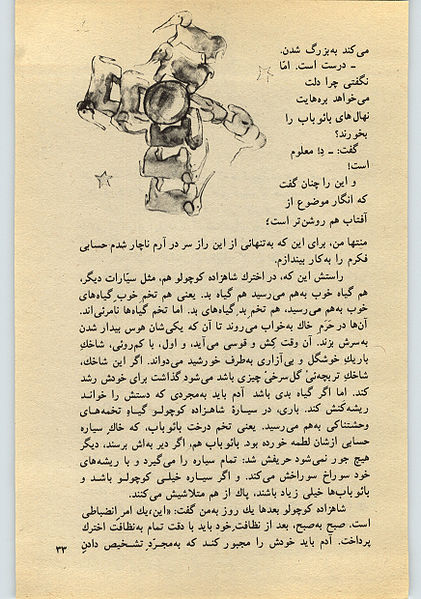 می‌کند به‌بزرگ شدن.
ـ درست است. امّا
نگفتی چرا دلت
می‌خواهد بره‌هایت
نهال‌های بائوباب را
بخورند؟
گفت: ـ دِ! معلوم
است!
و این را چنان گفت
که انگار موضوع از
آفتاب هم روشن‌تر است؛
منتها من، برای این که به‌تنهائی از این راز سر در آرم ناچار شدم حسابی
فکرم را به‌کار بیندازم.
راستش این که، در اخترك شاهزاده کوچولو هم، مثل سیّارات دیگر،
هم گیاه خوب به‌هم می‌رسید هم گیاه بد. یعنی هم تخم خوبِ گیاه‌های
خوب به‌هم می‌رسید، هم تخم بد گیاه‌های بد. اما تخم گیاه‌ها نامرئی‌اند.
آن‌ها در حَرَم خاك به‌خواب می‌روند تا آن که یکی‌شان هوس بیدار شدن
به‌سرش بزند. آن وقت کِش و قوسی می‌آید، و اول، با کم‌روئی، شاخكِ
باریكِ خوشگل و بی‌آزاری به‌طرف خورشید می‌دواند. اگر این شاخك،
شاخكِ تربچه‌ئی گل‌سرخی چیزی باشد می‌شود گذاشت برای خودش رشد
کند. اما اگر گیاه بدی باشد آدم باید به‌مجردی که دستش را خواند
ریشه‌کنش کند. باری، در سیارهٔ شاهزاده کوچولو گیاهِ تخمه‌های
وحشتناکی به‌هم می‌رسید. یعنی تخم درخت بائوباب، که خاك سیاره
حسابی ازشان لطمه خورده بود. بائوباب هم، اگر دیر به‌اش برسند، دیگر
هیچ جور نمی‌شود حریفش شد: تمام سیاره را می‌گیرد و با ریشه‌های
خود سوراخ سوراخش می‌کند. و اگر سیـاره خیلـی کوچولـو باشـد و
بائوباب‌ها خیلی زیاد باشند، پاك از هم متلاشیش می‌کنند.
شاهزاده کوچولو بعدها یك روز به‌من گفت: «این،یك امرِ انضباطی
است. صبح به‌صبح، بعد از نظافت خود باید با دقت تمام به‌نظافت اخترك
پرداخت. آدم باید خودش را مجبور کنـد که به‌مجـرّد تشـخیص دادن
۳۳